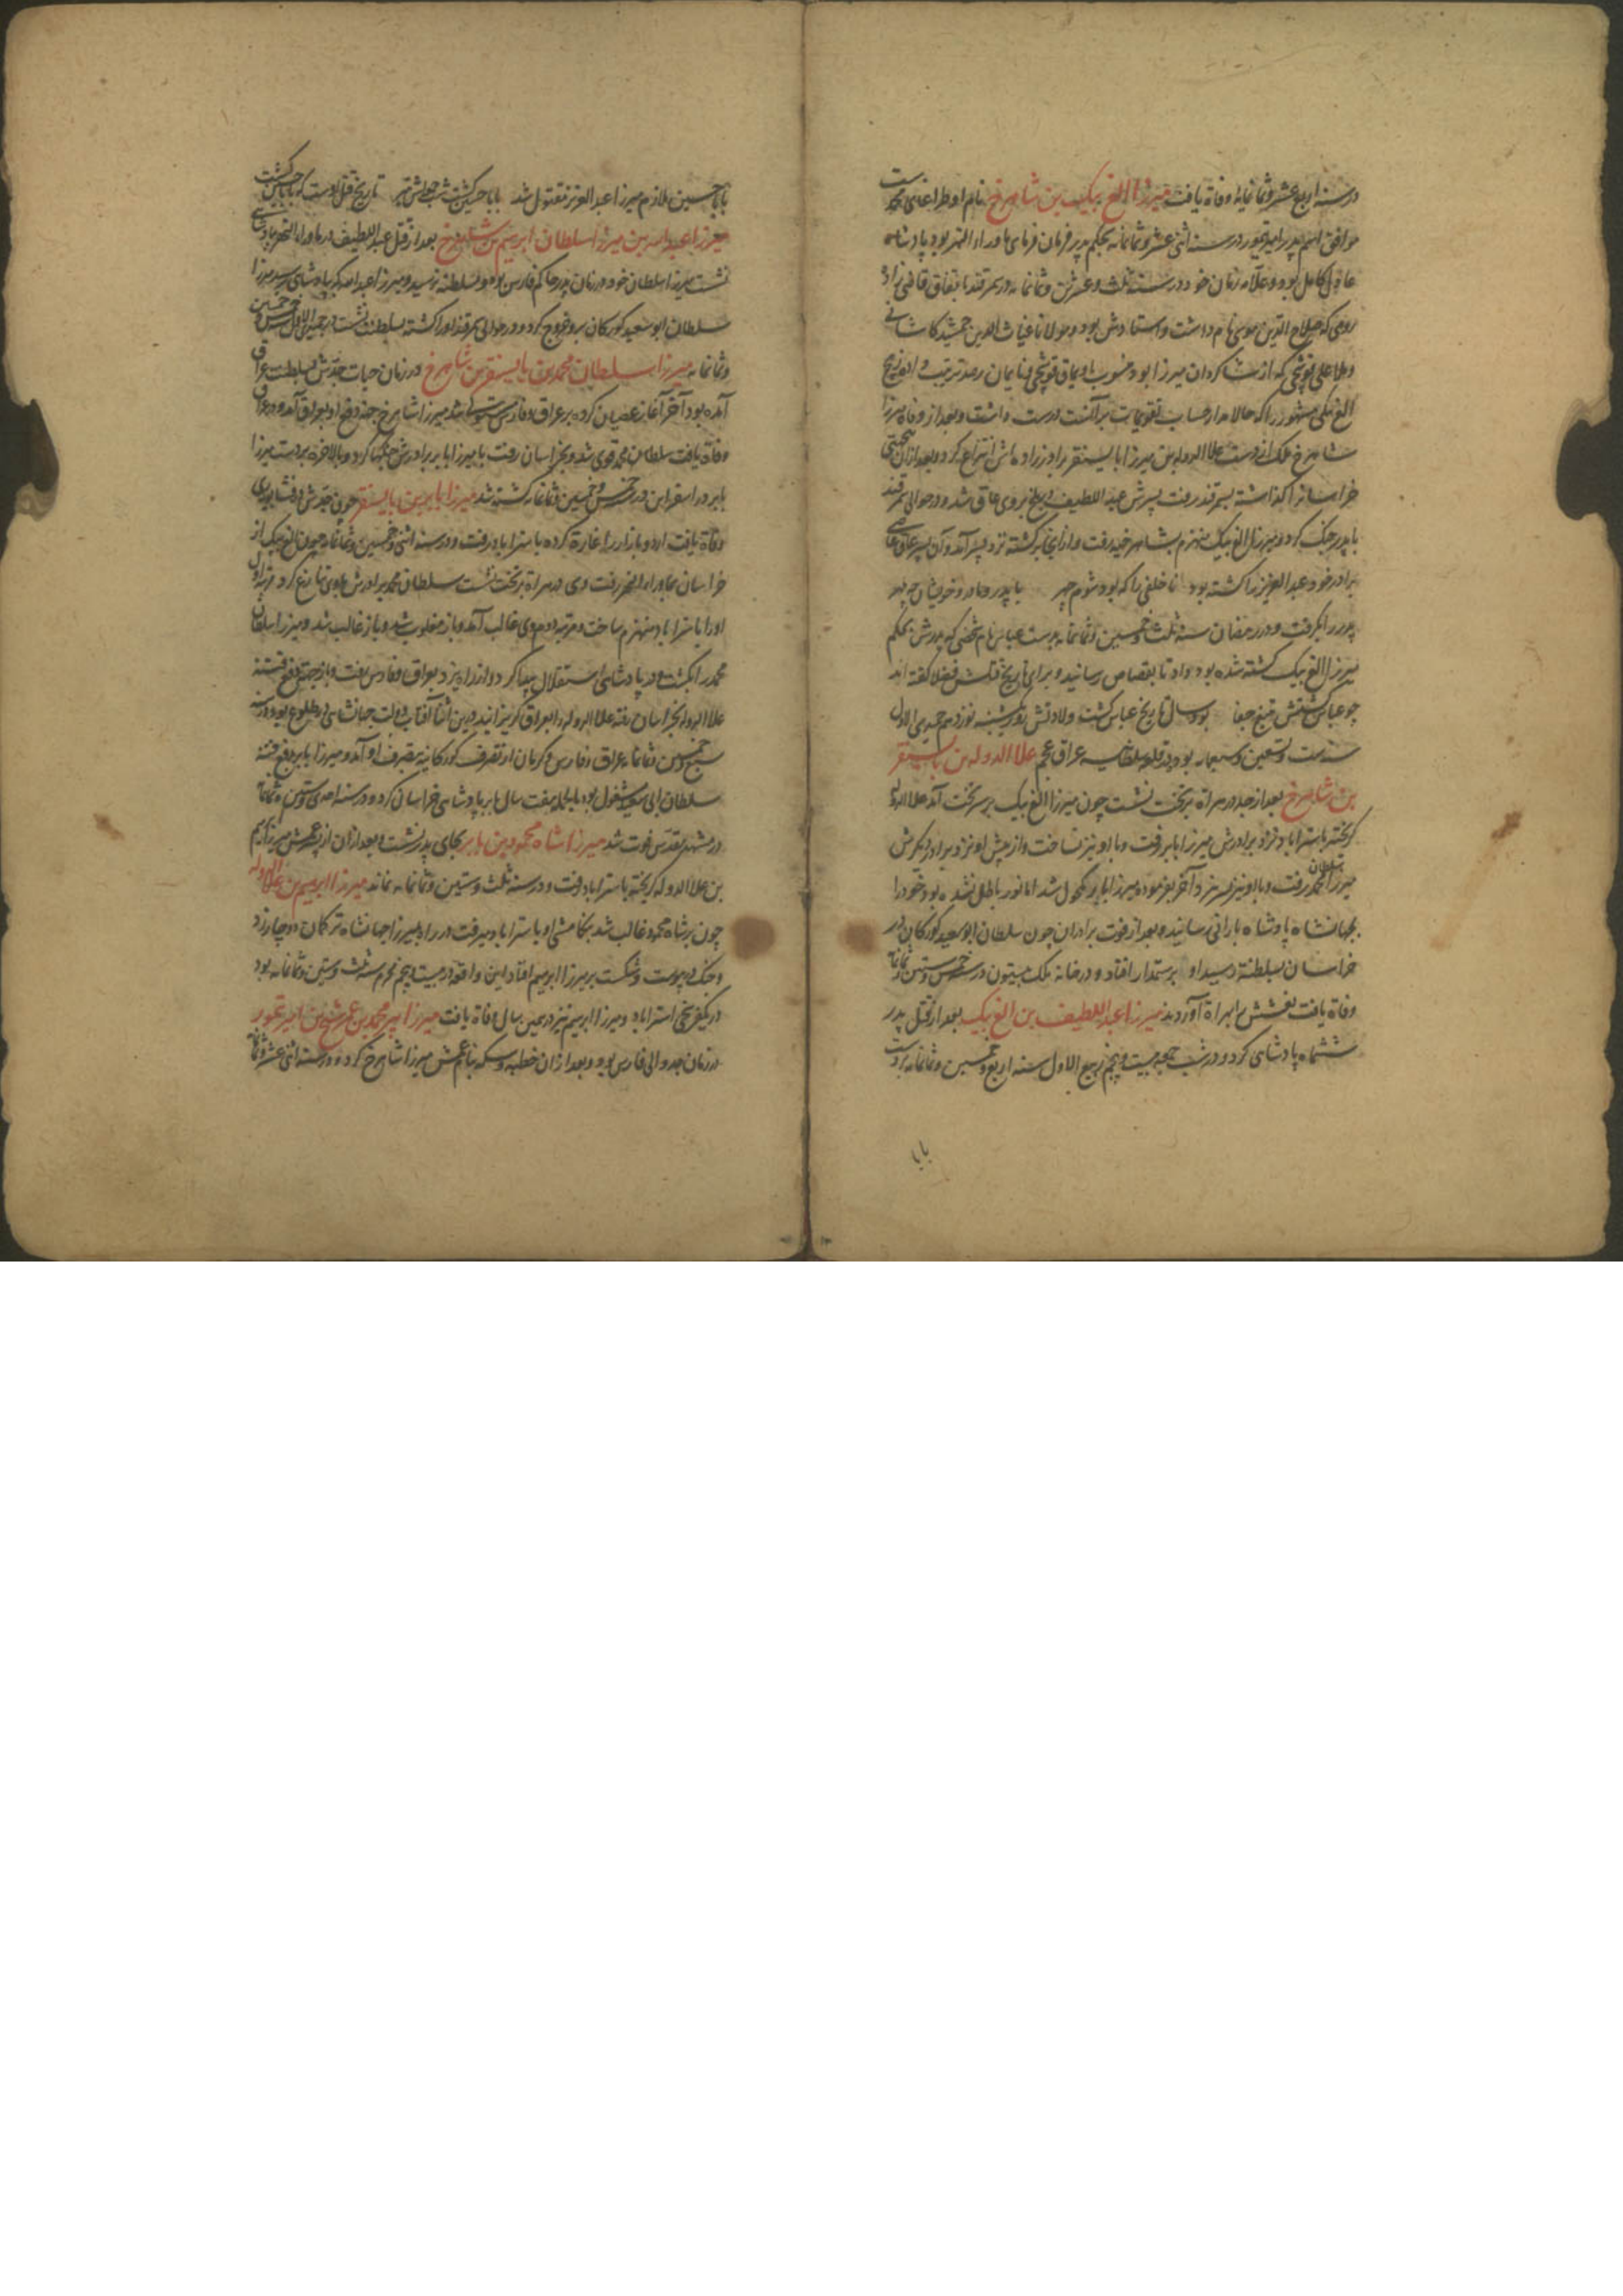 در سنه اربع عشر و ثمانمایه وفاة یافت میرزا الغ بیک بن شاهرخ نام او طراغای محمدست
موافق اسم پدر امیر تیمور در سنه اثنی عشر و ثمانمایه بحکم پدر فرمان فرمای ماوراء النهر بود پادشاه
عادل کامل بود و علامه زمان خود در سنه ثلث و عشرین و ثمانمایه در سمرقند باتفاق قاضی زاده
رومی که صلاح الدین موسی نام داشت و استادش بود و مولانا غیاث الدین جمشید کاشانی
و ملا علی قوشچی که از شاکردان میرزا بود و منسوب اویماق قوشچی بنایمان رصد ترتیب داد و زیج
الغ بیکی مشهور را که حالا مدار حساب تقویمات بر آنست درست داشت و بعد از وفاة میرزا
شاهرخ ملک از دست علاالدوله بن میرزا بایسنقر برادرزاده اش انتزاع کرد و بعد از آن
خراسان را کذاشته بسمرقند رفت پسرش عبداللطیف در بلخ بروی عاق شد و در حوالی سمرقند
با پدر جنک کرد و میرزا الغ بیک منهزم بشاهرخیه رفت و از انجا برکشته نزد پسر آمد و آن پسر عاق عاصی
برادر خود عبدالعزیز را کشته بود ناخلفی را که بود شوم چهر با پدر و مادر و خویشان چه مهر
پدر را بکرفت و در رمضان سنه ثلث و خمسین و ثمانمایه بدست عباس نام شخصی که پدرش بحکم
میرزا الغ بیک کشته شده بود داد تا بقصاص رسانید و برای تاریخ قتلش فضلا کفته اند
چو عباس کشتش بتیغ جفا بود سال تاریخ عباس کشت ولادتش روز یکشنبه نوزدهم جمیدی الاول
سنه ست و تسعین و سبعمایه بود در قلعه سلطانیه عراق عجم علاالدوله بن بایسنقر
بن شاهرخ بعد از جد در هراة بر تخت نشست چون میرزا الغ بیک بر سر تخت آمد علاالدوله
کریخته باستراباد نزد برادرش میرزا بابر رفت و با او نیز نساخت و از پیش او نزد برادر دیکرش
میرزا سلطان محمد رفت و با او نیز بسر نبرد و آخر بفرموده میرزا بابر مکحول شد اما نور باطل نشده بود خود را
بجهانشاه پادشاه بارانی رسانید و بعد از فوت برادران چون سلطان ابوسعید کورکان در
خراسان بسلطنة رسید او برستمدار افتاد و در خانه ملک بیستون در سنه خمس و ستین و ثمانمایه
وفاة یافت نعشش را بهراة آوردند میرزا عبداللطیف بن الغ بیک بعد از قتل پدر
ششماه پادشاهی کرد و در شب جمعه بیست و پنجم ربیع الاول سنه اربع و خمسین و ثمانمایه بردست
بابا
بابا حسین ملازم میرزا عبدالعزیز مقتول شد بابا حسین کشت شب جمعه اش بتیر تاریخ قتل اوست که بابا حسین کشت
میرزا عبدالله بن میرزا سلطان ابراهیم بن شاهرخ بعد از قتل عبداللطیف در ماوراء النهر بپادشاهی
نشست میرزا سلطان خود در زمان پدر حاکم فارس بود و بسلطنه نرسید و میرزا عبدالله که بپادشاهی رسید میرزا
سلطان ابوسعید کورکان برو خروج کرد و در حوالی سمرقند او را کشته بسلطنت نشست در جمیدی الاول سنه خمس و خمسین
و ثمانمایه میرزا سلطان محمد بن بایسنقر بن شاهرخ در زمان حیات جدش بسلطنت عراق
آمده بود آخر آغاز عصیان کرده بر عراق و فارس مستولی شد میرزا شاهرخ جهة دفع او بعراق آمد و در عراق
وفاة یافت سلطان محمد قوی شد و بخراسان رفت با میرزا بابر برادرش جنکها کرد و بالاخره بردست میرزا
بابر در اسفراین در سنه خمس و خمسین و ثمانمایه کشته شد میرزا بابر بن بایسنقر چون جدش در فشاپویه ری
وفاة یافت اردو بازار را غارة کرده باستراباد رفت و در سنه اثنی و خمسین و ثمانمایه چون الغ بیک از
خراسان بماوراء النهر رفت وی در هراة بر تخت نشست سلطان محمد برادرش باوی تنازع کرد مرتبه اول
او را باستراباد منهزم ساخت و مرتبه دوم وی غالب آمد و باز مغلوب شد و باز غالب شد و میرزا سلطان
محمد را بکشت و در پادشاهی استقلال پیدا کرد و از راه یزد بعراق و فارس رفت و باز جهة دفع فتنه
علاالدوله بخراسان رفته علاالدوله را بعراق کریزانید درین اثنا آفتاب دولت جهانشاهی در طلوع بود در سنه
سبع و خمسین و ثمانمایه عراق و فارس و کرمان از تصرف کورکانیه بتصرف او آمد و میرزا بابر بدفع فتنه
سلطان ابی سعید مشغول بود بالجمله هفت سال بابر پادشاهی خراسان کرد و در سنه احدی و ستین و ثمانمایه
در مشهد مقدس فوت شد میرزا شاه محمود بن بابر بجای پدر نشست و بعد از آن از پسر عمش میرزا ابراهیم
بن علاالدوله کریخته باستراباد رفت و در سنه ثلث و ستین و ثمانمایه نماند میرزا ابراهیم بن علاالدوله
چون بر شاه محمود غالب شد بتکامشی او باستراباد میرفت در راه بمیرزا جهانشاه ترکمان دوچار زد
و جنک در پیوست و شکست بر میرزا ابراهیم افتاد این واقعه در بیست و پنجم محرم سنه ثلث و ستین و ثمانمایه بود
در یکفرسخی استراباد و میرزا ابراهیم نیز در همین سال وفاة یافت میرزا پیر محمد بن عمر شیخ بن امیر تیمور
در زمان جد والی فارس بود و بعد از آن خطبه و سکه بنام عمش میرزا شاهرخ کرد و در سنه اثنی عشر و ثمانمایه